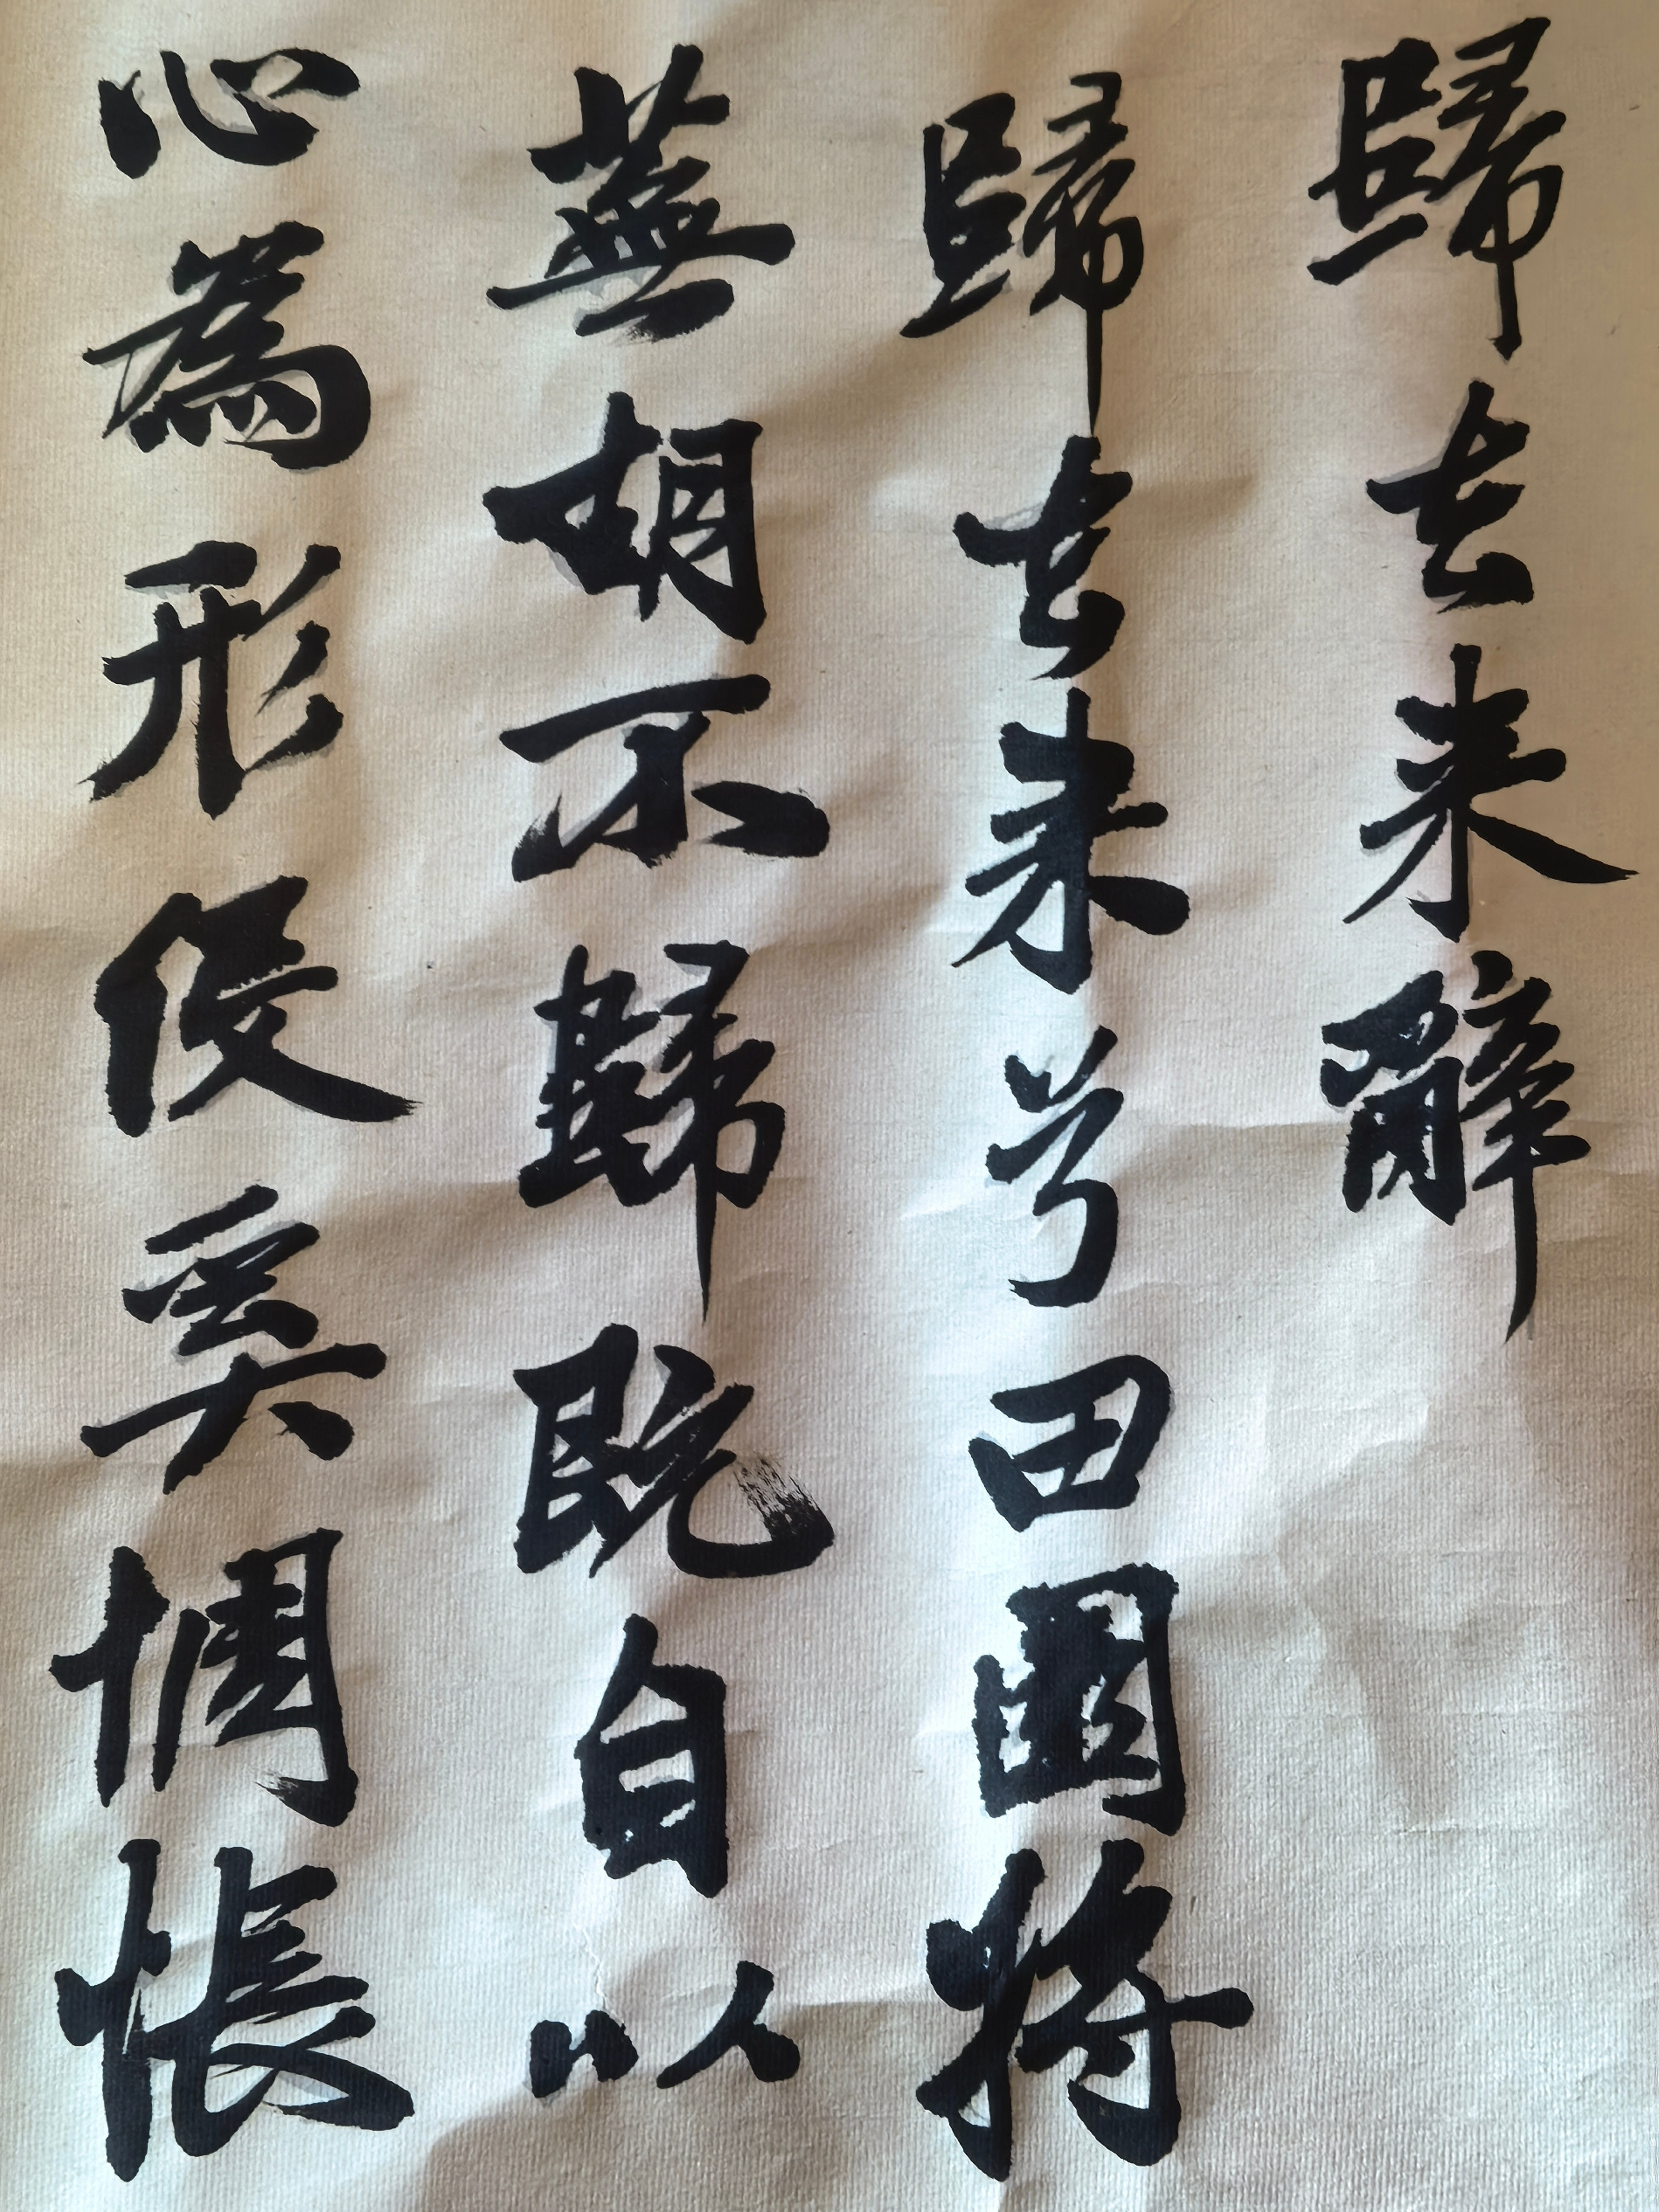 歸去来辭
歸去来兮田園将
蕪胡不歸既自以
心為形役奚惆悵